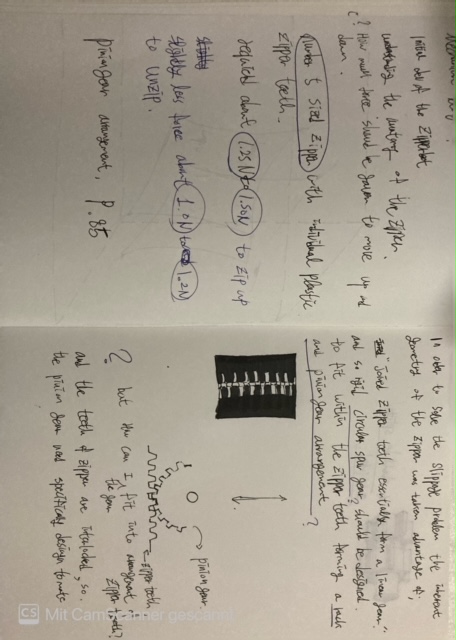 Initial dev of the Zipperbot
understanding the anatomy of the zipper.
? How much force should be given to move up and
down.
number 5 sized zipper with individual plastic
zipper teeth.
required about 1.25N to 1.50N to zip up
slightly less force about 1.0N to 1.2N
to unzip.
pinion gear arrangement, P.85
In order to solve the slippage problem the inherent
geometry of the zipper was taken advantage of;
"Joined zipper teeth essentially form a linear gear"
and so rigid circular spur gear? should be designed
to fit within the zipper teeth forming a rack
and pinion gear arrangement ?
pinion gear.
zipper teeth
? but How can I fit into arrangement
the gear zipper teeth?
and the teeth of zipper are interlocked, so.
the pinion gear need specifically design to mate
CS